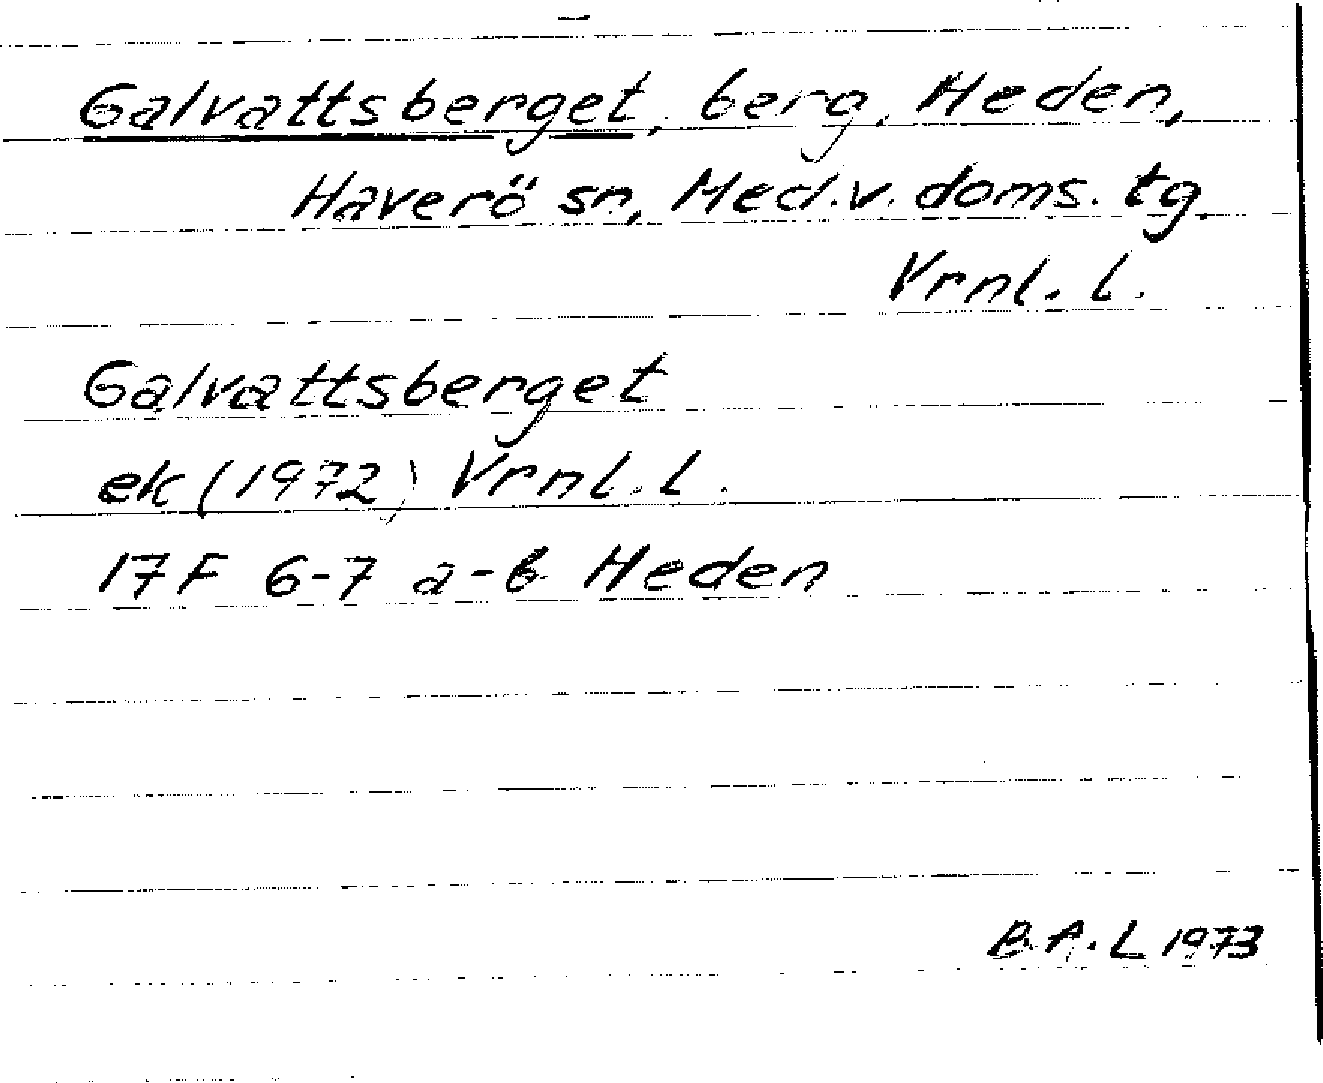 Galvattsberget, berg, Heden,
Haverö sn, Med.v. doms. tg.
Vrnl. l.
Galvattsberget
ek (1972) Vrnl. l.
17F 6-7 a-b Heden
B.A.L 1973